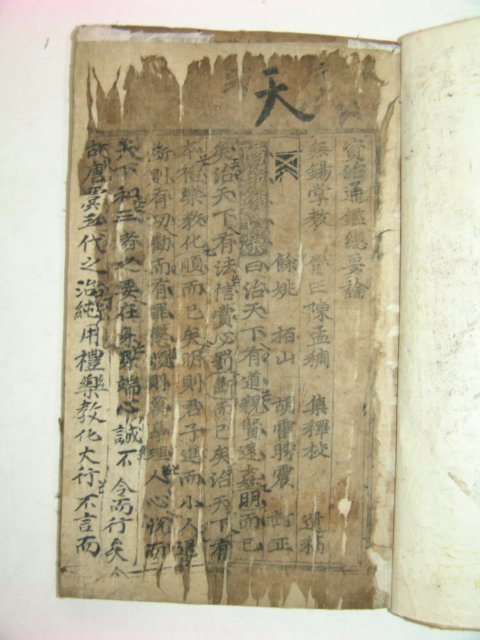 天
資治通鑑總要論
無錫掌教 管正陳孟稠 集釋校
餘姚 栢山 胡 震 訂正
曰治天下有道親賢遠姦明而已
矣治天下有法信賞必罰斷而已矣治天下有
本禮樂教化順而已矣明則君子進而小人退
斷則有功勸而有罪懲順則萬事理人心悅而
天下和三者之要在身身端心誠不令而行矣
故唐虞三代之治純用禮樂教化大行不言而